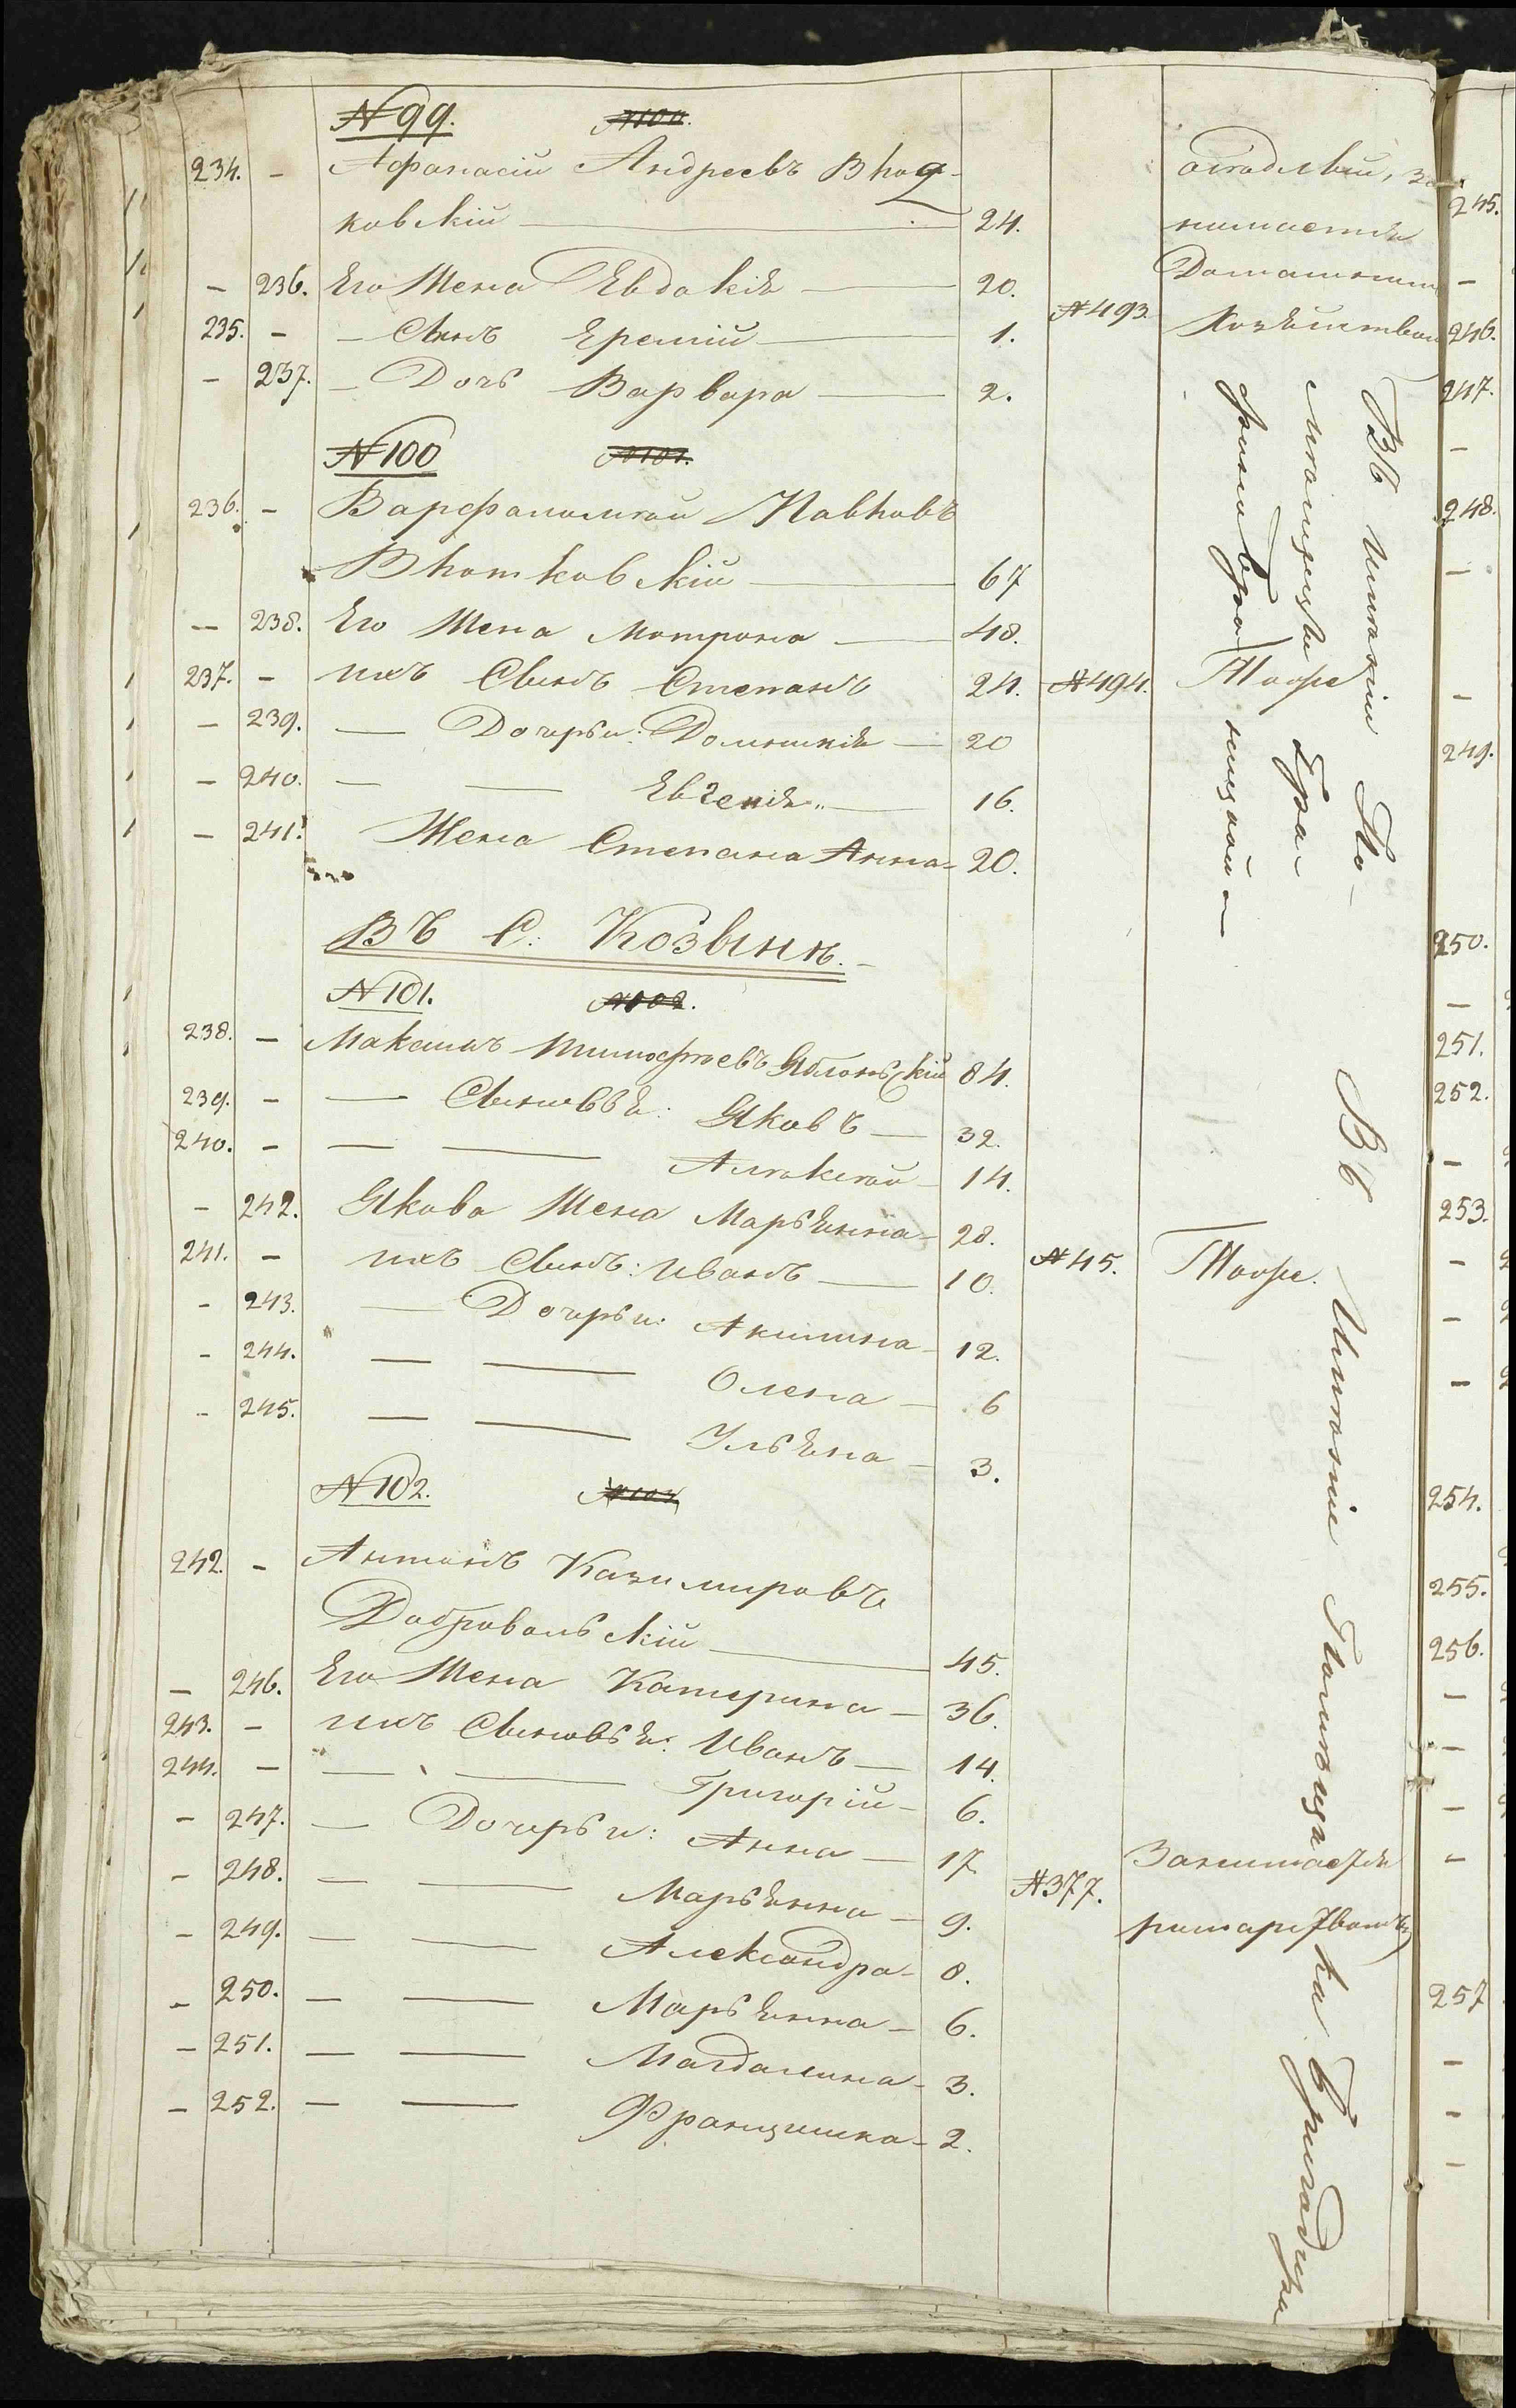 № 99. № 100.
234. - Афанасій Андреевъ Вhод-
ковскій 24.
- 236. Его Жена Евдокія 20. № 493.
235. - - Сынъ Еремій 1.
- 237. - Дочь Варвара 2.
осѣдлый, за-
нимается
Домашним
Хозяйством
№ 100 № 101.
236. - Варфаломѣй Павловъ
Вhотковскій 67
- 238. Его Жена Мотрона 48.
237. - ихъ Сынъ Степанъ 24. № 494. Тоже
- 239. Дочери: Домникія 20
- 240. Евгенія 16.
- 241. Жена Степана Анна 20.
Въ С: Козынѣ.
№ 101. № 102.
238. - Максимъ Тимофѣевъ Яблонскій 84.
239. - Сыновья: Яковъ 32.
240. - Алексѣй 14.
- 242. Якова Жена Марьянна 28.
241. - ихъ Сынъ: Иванъ 10. № 45. Тоже.
- 243. Дочери: Акилина 12.
- 244. Олена 6
- 245. Ульяна 3.
№ 102. № 103
242. - Антонъ Казимировъ
Добровольскій 45.
- 246. Его Жена Катерина 36.
243. - ихъ Сыновья: Иванъ 14.
244. - Григорій 6.
- 247. Дочери: Анна 17
- 248. Марьянна 9. № 377.
- 249. Александра 8.
- 250. Марьянна 6.
- 251. Магдалина 3.
- 252. Францишка 2.
Занимается
Въ имѣніи По-
мѣщицы Гра-
Въ Имѣніе Помѣщика Бригадира
245.
-
246.
247.
-
248.
-
-
249.
250.
-
251.
252.
-
253.
-
-
-
254.
255.
256.
-
-
-
-
257
-
-
-